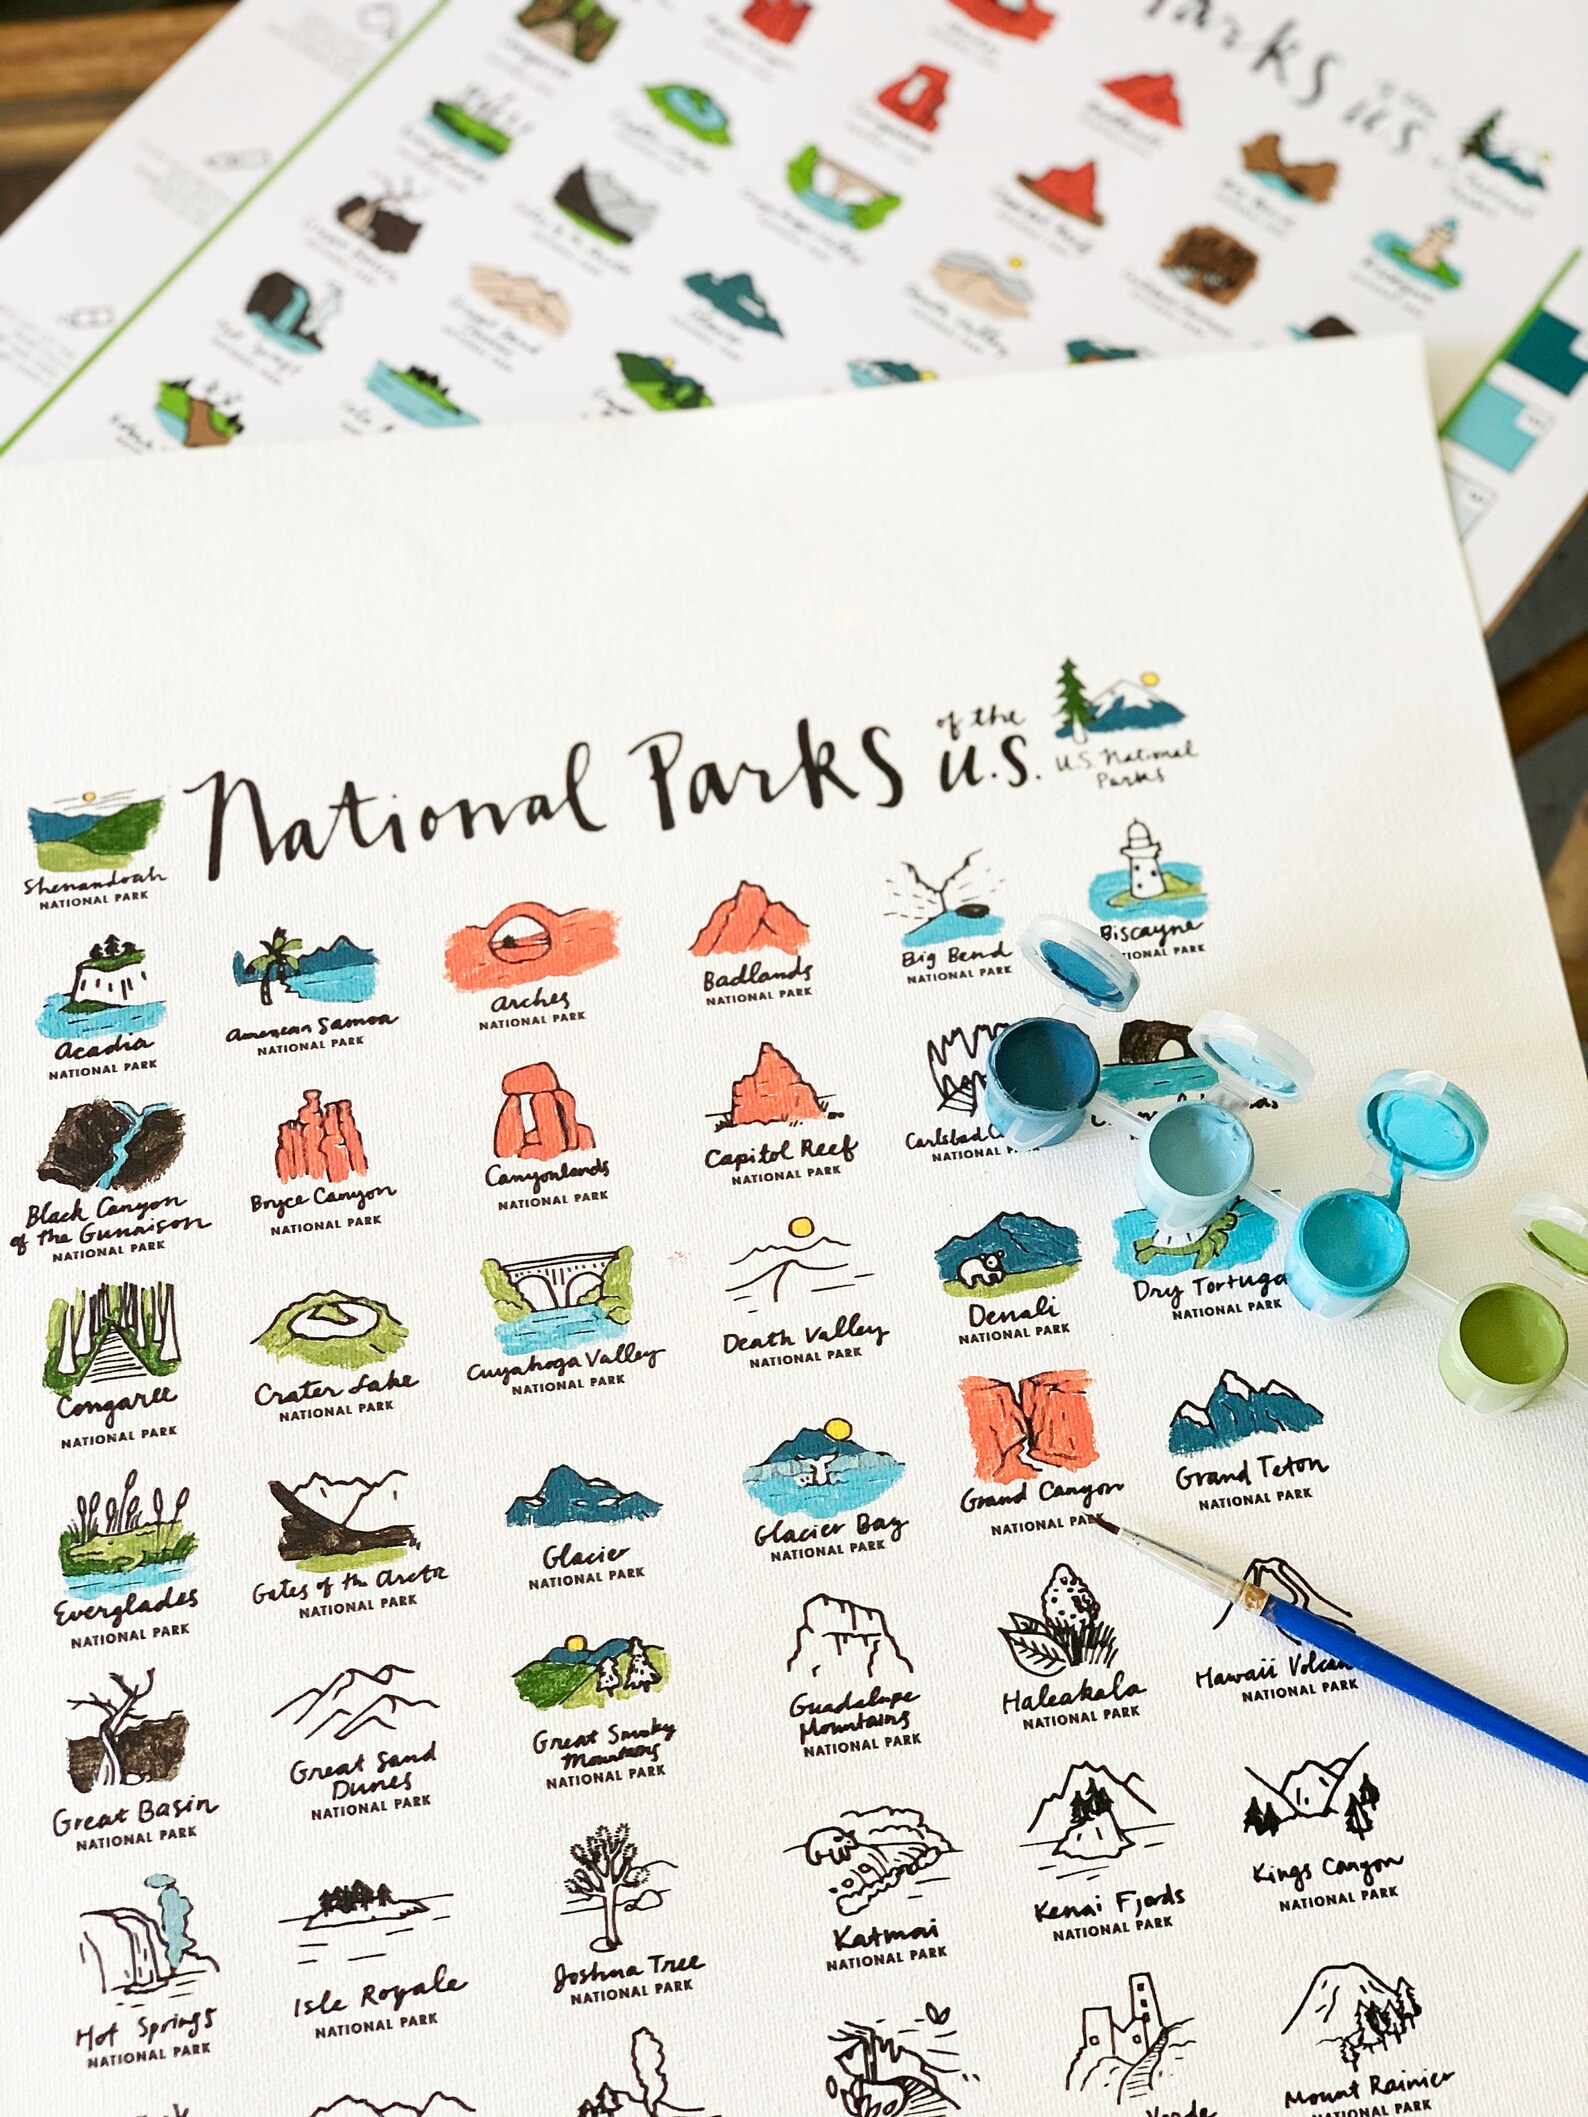 Parks
U.S.
National Parks of the U.S.
U.S. National
Parks
Shenandoah
NATIONAL PARK
Acadia
NATIONAL PARK
American Samoa
NATIONAL PARK
Arches
NATIONAL PARK
Badlands
NATIONAL PARK
Big Bend
NATIONAL PARK
Biscayne
PARK
Black Canyon
of the Gunnison
NATIONAL PARK
Bryce Canyon
NATIONAL PARK
Canyonlands
NATIONAL PARK
Capitol Reef
NATIONAL PARK
Carlsbad
NATIONAL
Congaree
NATIONAL PARK
Crater Lake
NATIONAL PARK
Cuyahoga Valley
NATIONAL PARK
Death Valley
NATIONAL PARK
Denali
NATIONAL PARK
Dry Tortuga
NATIONAL PARK
Everglades
NATIONAL PARK
Gates of the Arctic
NATIONAL PARK
Glacier
NATIONAL PARK
Glacier Bay
NATIONAL PARK
Grand Canyon
NATIONAL PARK
Grand Teton
NATIONAL PARK
Great Basin
NATIONAL PARK
Great Sand
Dunes
NATIONAL PARK
Great Smoky
Mountains
NATIONAL PARK
Guadalupe
Mountains
NATIONAL PARK
Haleakala
NATIONAL PARK
Hawaii Volcan
NATIONAL PARK
Hot Springs
NATIONAL PARK
Isle Royale
NATIONAL PARK
Joshua Tree
NATIONAL PARK
Katmai
NATIONAL PARK
Kenai Fjords
NATIONAL PARK
Kings Canyon
NATIONAL PARK
Verde
Mount Rainier
NATIONAL PARK